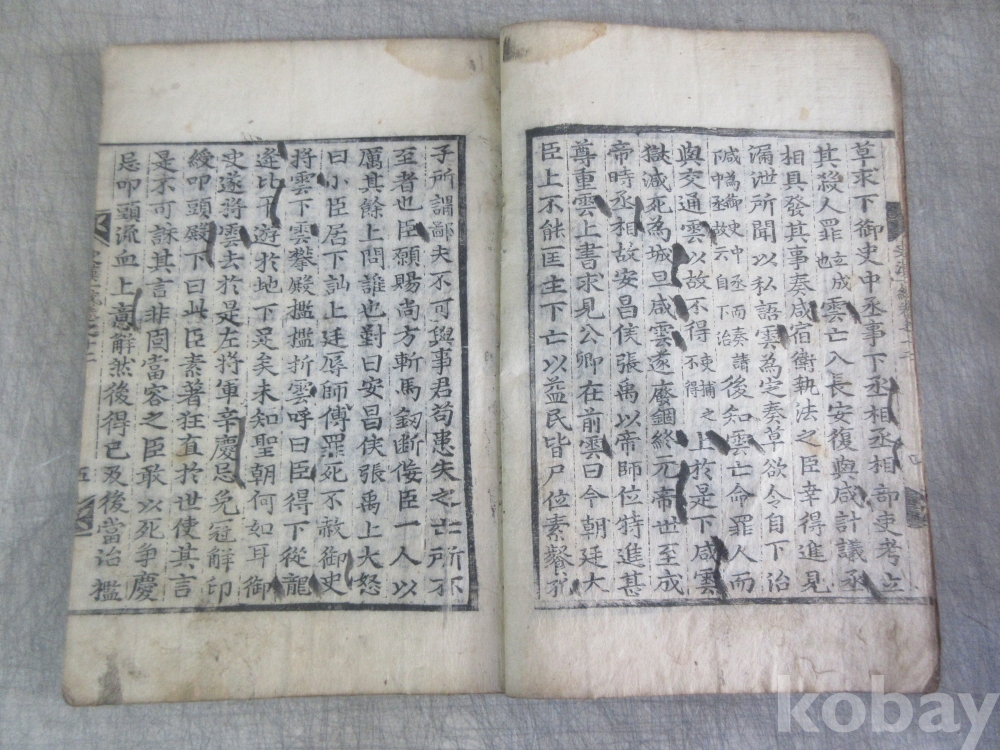 草求下御史中丞事下丞相丞相部吏考立
其殺人罪立成也雲亡入長安復與咸計議丞
相具發其事奏咸宿衛執法之臣幸得進見
漏泄所聞以私語雲為定奏草欲令自下治
咸為御史中丞而奏請下中丞故云自下治後知雲亡命罪人而
與交通雲以故不得吏捕之不得上於是下咸雲
獄減死為城旦咸雲遂廢錮終元帝世至成
帝時丞相故安昌侯張禹以帝師位特進甚
尊重雲上書求見公卿在前雲曰今朝廷大
臣上不能匡主下亡以益民皆尸位素餐孔
子所謂鄙夫不可與事君苟患失之亡所不
至者也臣願賜尚方斬馬劔斷佞臣一人以
厲其餘上問誰也對曰安昌侯張禹上大怒
曰小臣居下訕上廷辱師傅罪死不赦御史
將雲下雲攀殿檻檻折雲呼曰臣得下從龍
逄比干遊於地下足矣未知聖朝何如耳御
史遂將雲去於是左將軍辛慶忌免冠解印
綬叩頭殿下曰此臣素著狂直於世使其言
是不可誅其言非固當容之臣敢以死爭慶
忌叩頭流血上意解然後得已及後當治檻
五
kobay